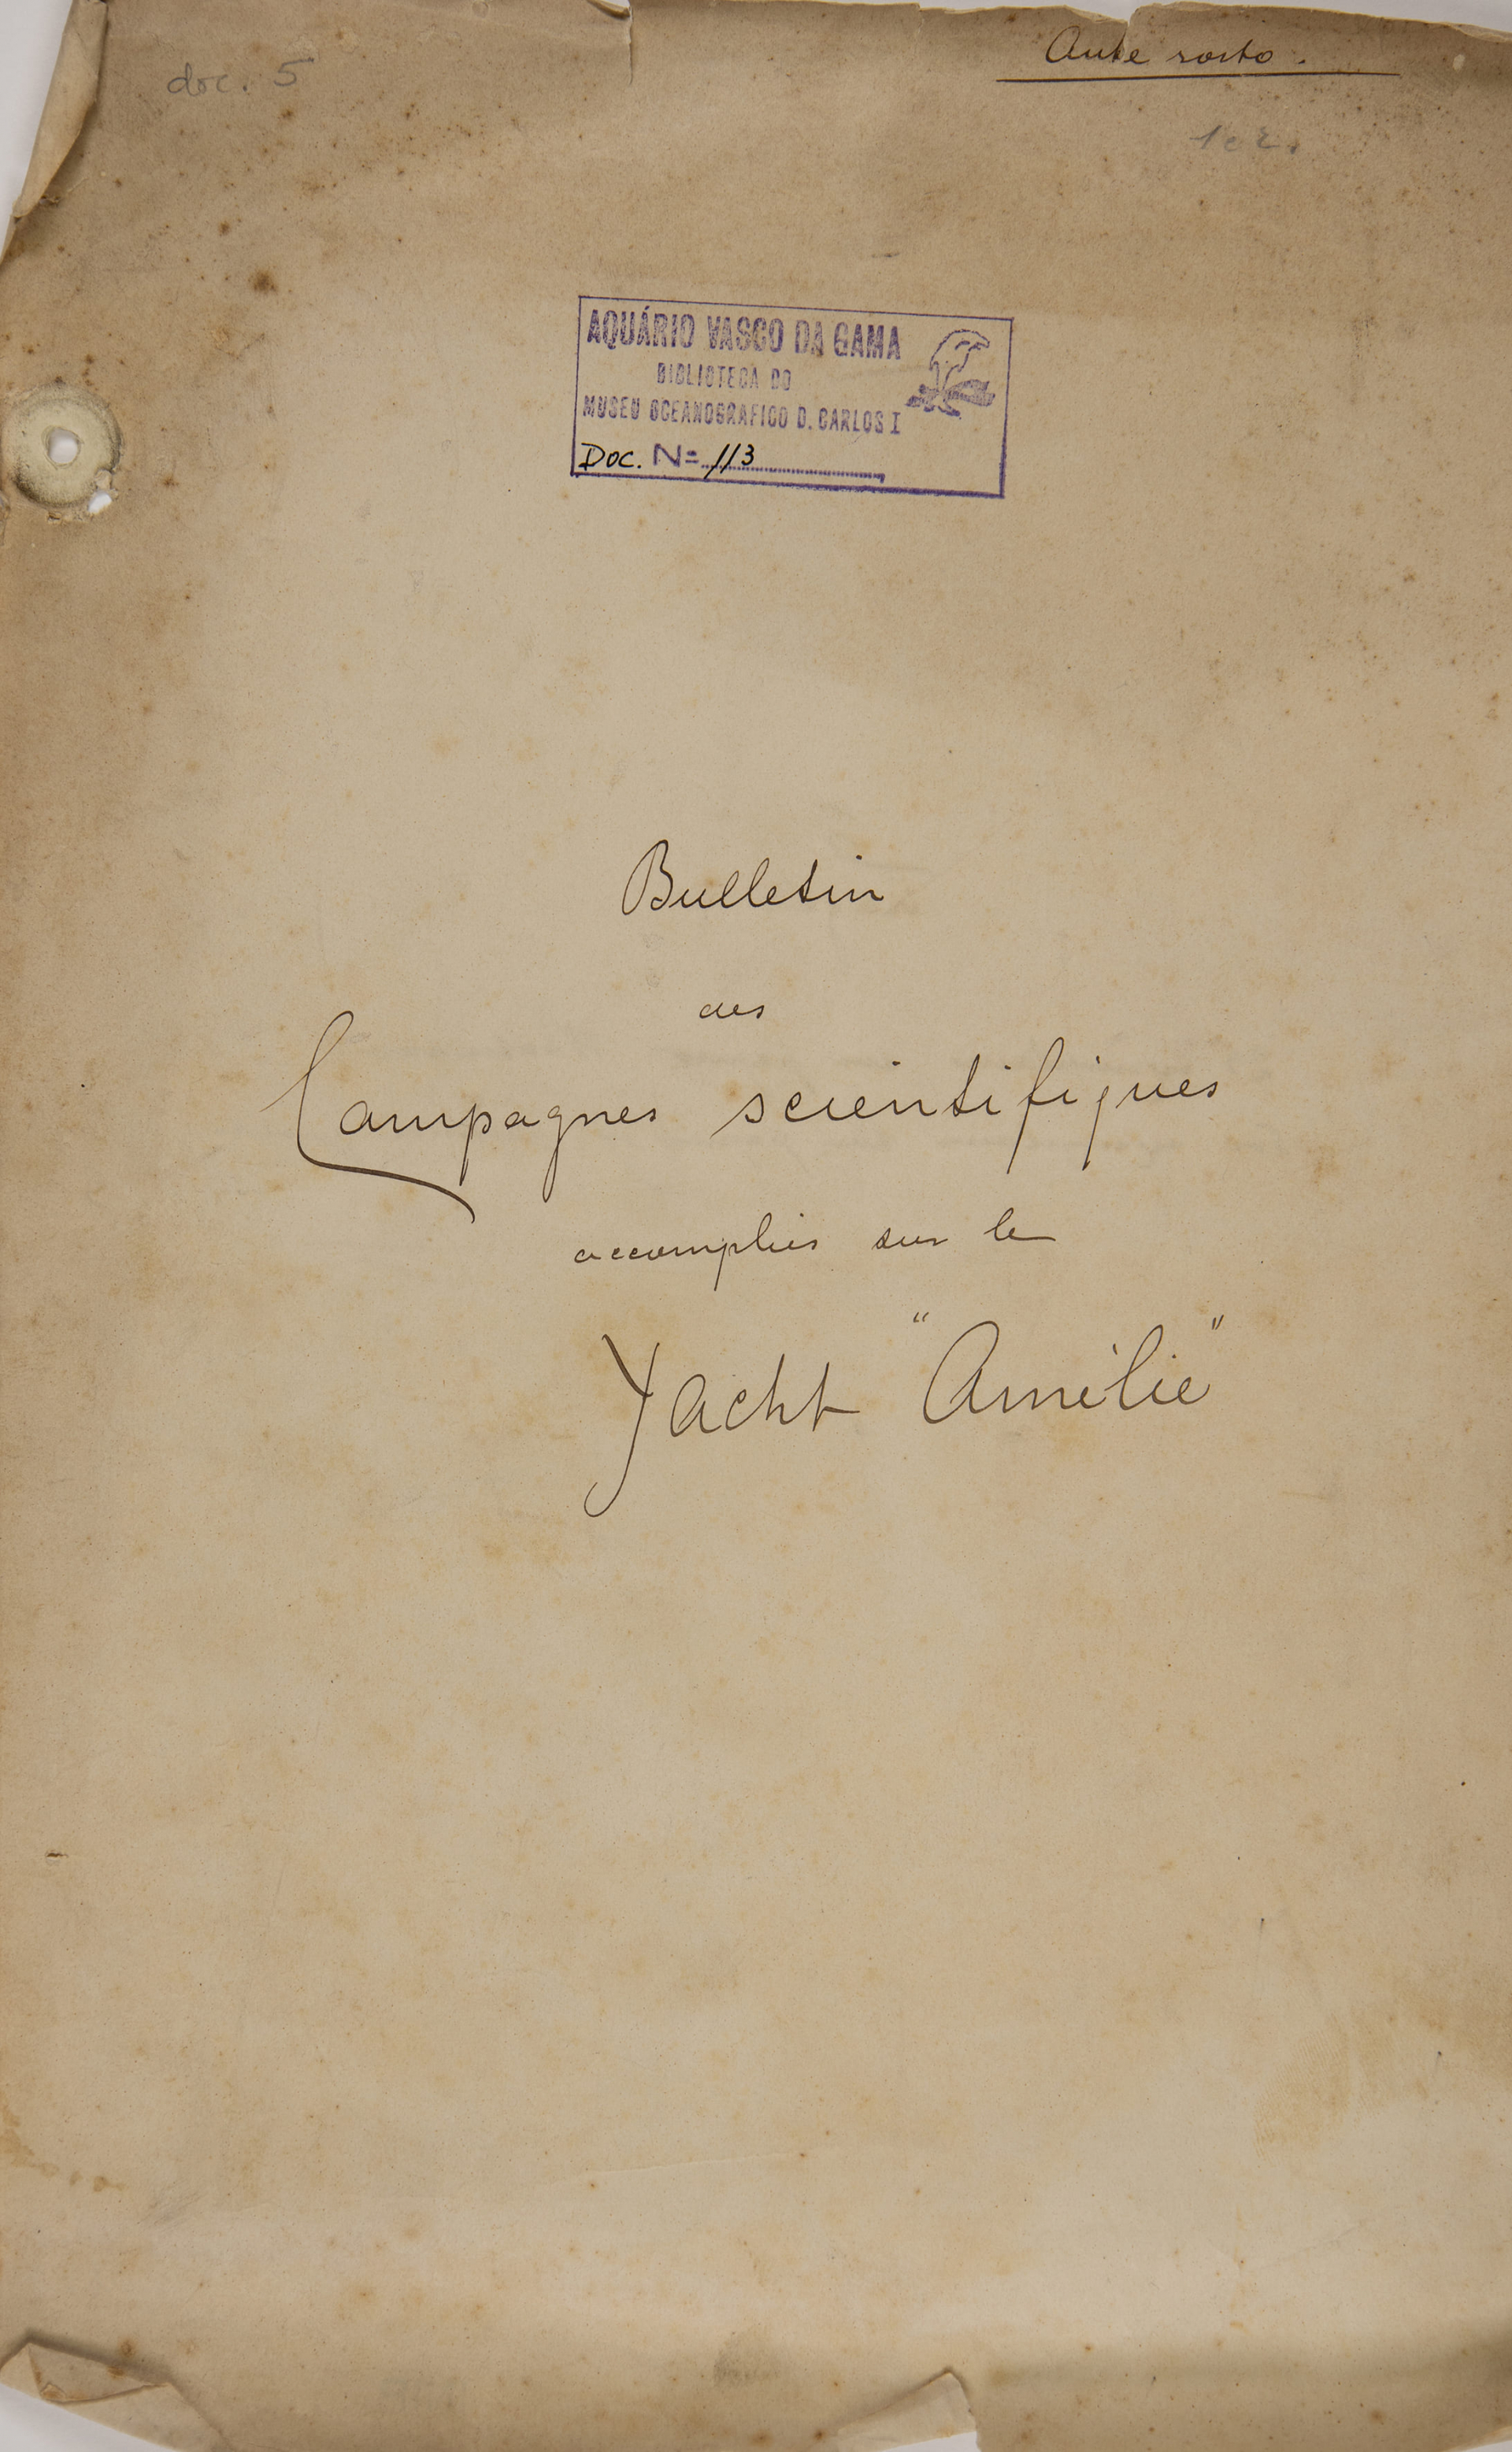 doc. 5
Ante rosto.
1 e 2.
AQUÁRIO VASCO DA GAMA
BIBLIOTECA DO
MUSEU OCEANOGRAFICO D. CARLOS I
Doc. N= 113
Bulletin
des
Campagnes scientifiques
accomplies sur le
Yacht "Amélie"